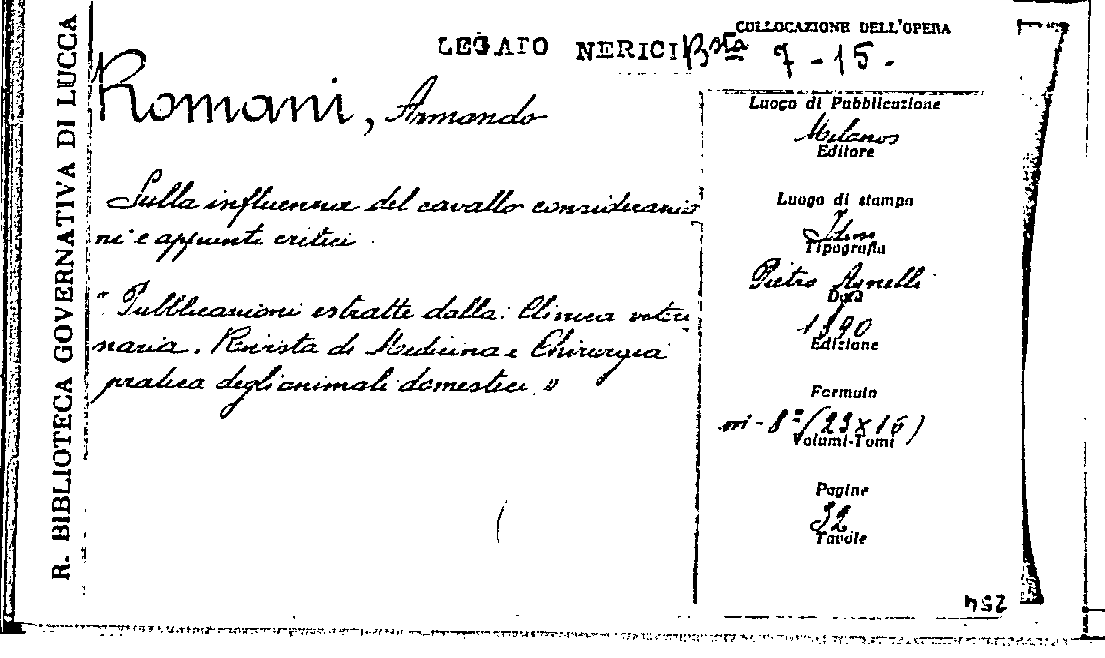 R. BIBLIOTECA GOVERNATIVA DI LUCCA
LEGATO NERICI
COLLOCAZIONE DELL'OPERA
Bsta 7-15.
Romani, Armando
Sulla influenza del cavallo considerazio
ni e appunti critici.
"Pubblicazioni estratte dalla: Clinica veteri
naria. Rivista di Medicina e Chirurgia
pratica degli animali domestici."
Luogo di Pubblicazione
Milano
Editore
Luogo di stampa
Idem
Tipografia
Pietro Agnelli
Data
1890
Edizione
Formato
in-8º (23x16)
Volumi-Tomi
Pagine
32
Tavole
254